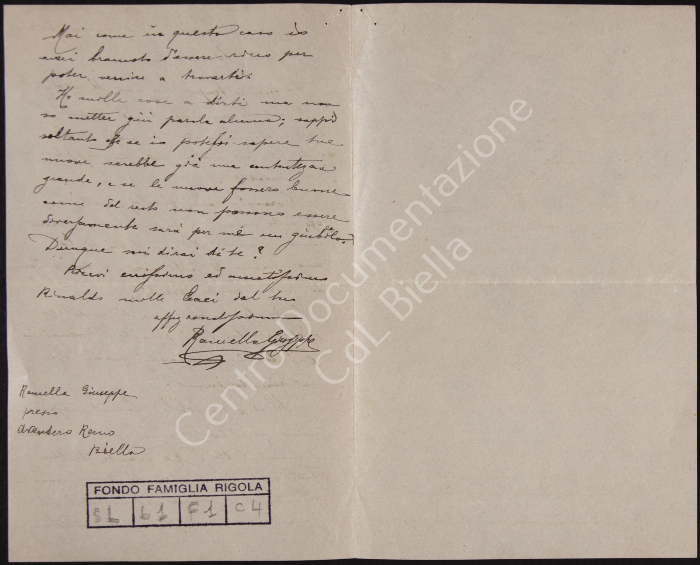 Mai come in questo caso io
avrei bramato d'essere ricco per
poter venire a trovarti.
Ho molte cose a dirti ma non
so metter giù parola alcuna; sappi
soltanto che se io potessi sapere tue
nuove sarebbe già una contentezza
grande, e se le nuove fossero buone
come del resto non possono essere
diversamente sarà per me un giubilo.
Dunque mi dirai di te?
Ricevi carissimo ed amatissimo
Rinaldo mille baci dal tuo
aff
Ramella Giuseppe
Ramella Giuseppe
presso
Remo
Biella
FONDO FAMIGLIA RIGOLA
SL 61 F1 C4
Centro Documentazione
CdL Biella